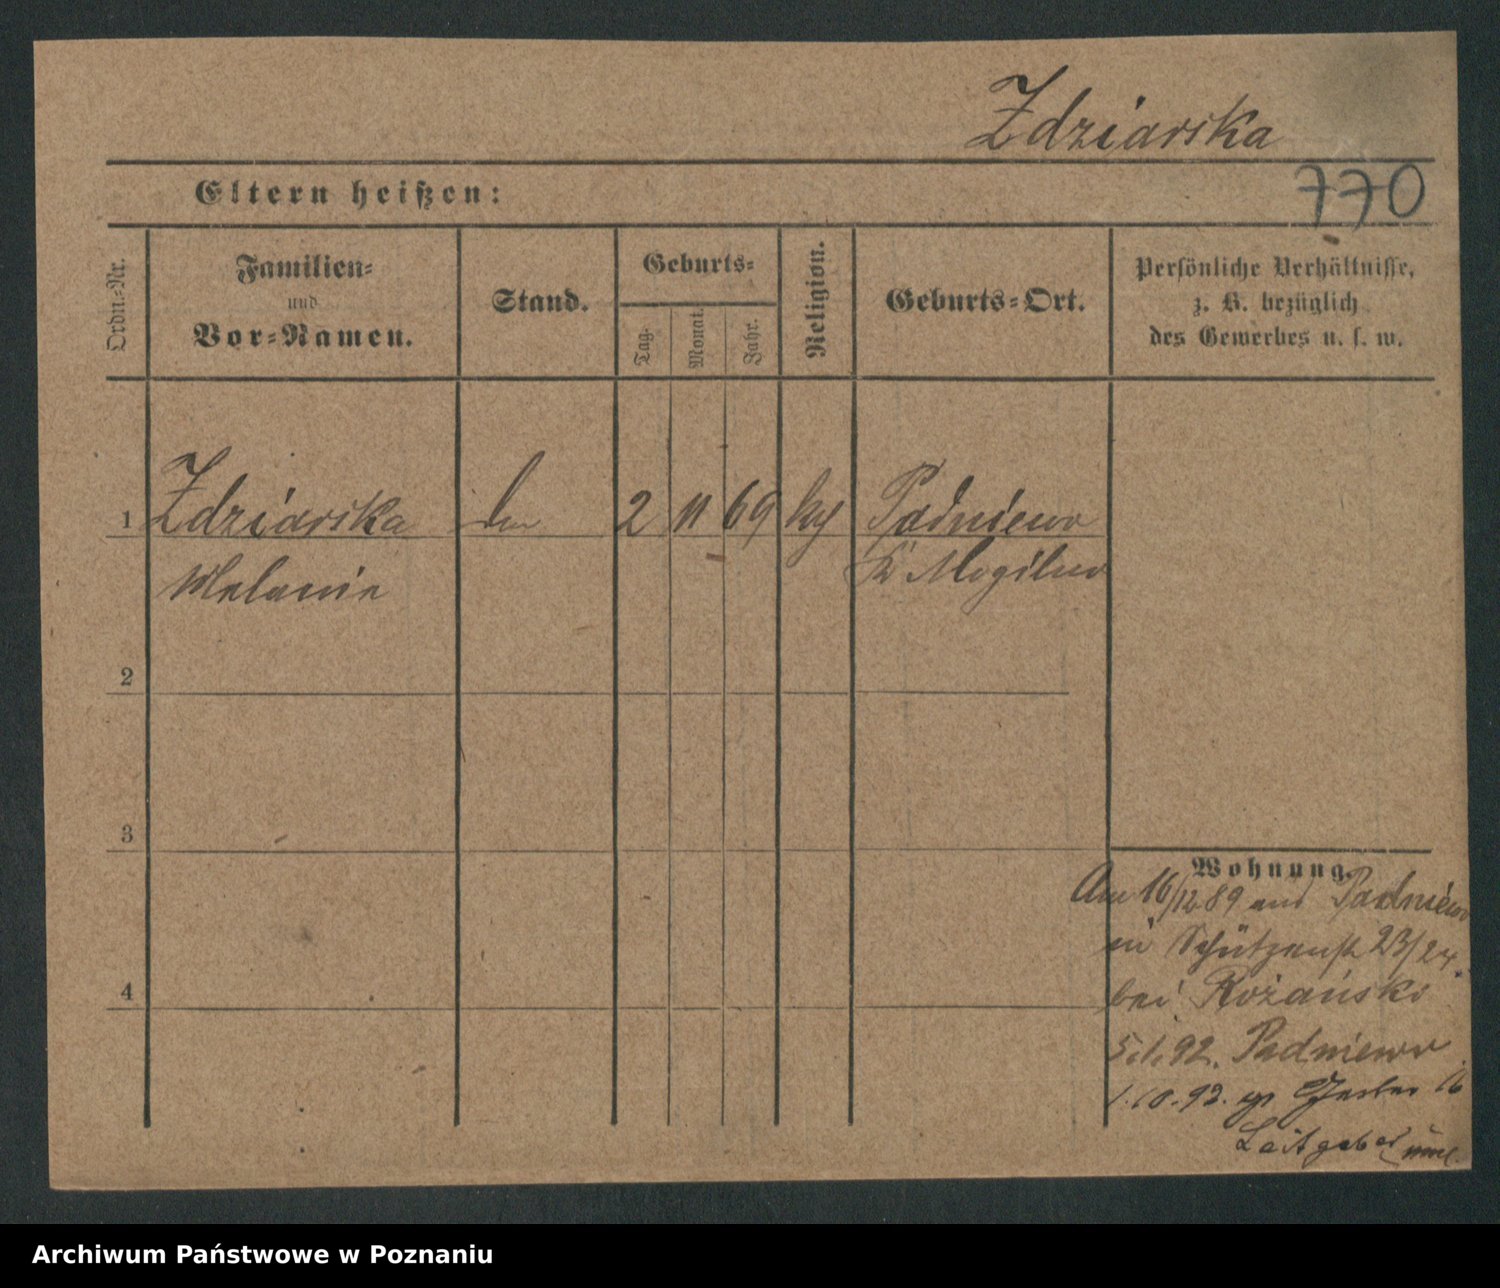 Zdziarska
Eltern heißen:
770
Ordn.-Nr.
Familien-
und
Vor-Namen.
Stand.
Geburts-
Tag.
Monat.
Jahr.
Religion.
Geburts-Ort.
Persönliche Verhältnisse,
z. B. bezüglich
des Gewerbes u. s. w.
1 Zdziarska 2 11 69 Padniewo
Melanie Mogilno
2
3
4
Wohnung.
Am 16/12 89 aus Padniewo
in Schützenstr 23/24.
bei Rożański
92. Padniewo
1.10.93.
Leitgeber
Archiwum Państwowe w Poznaniu